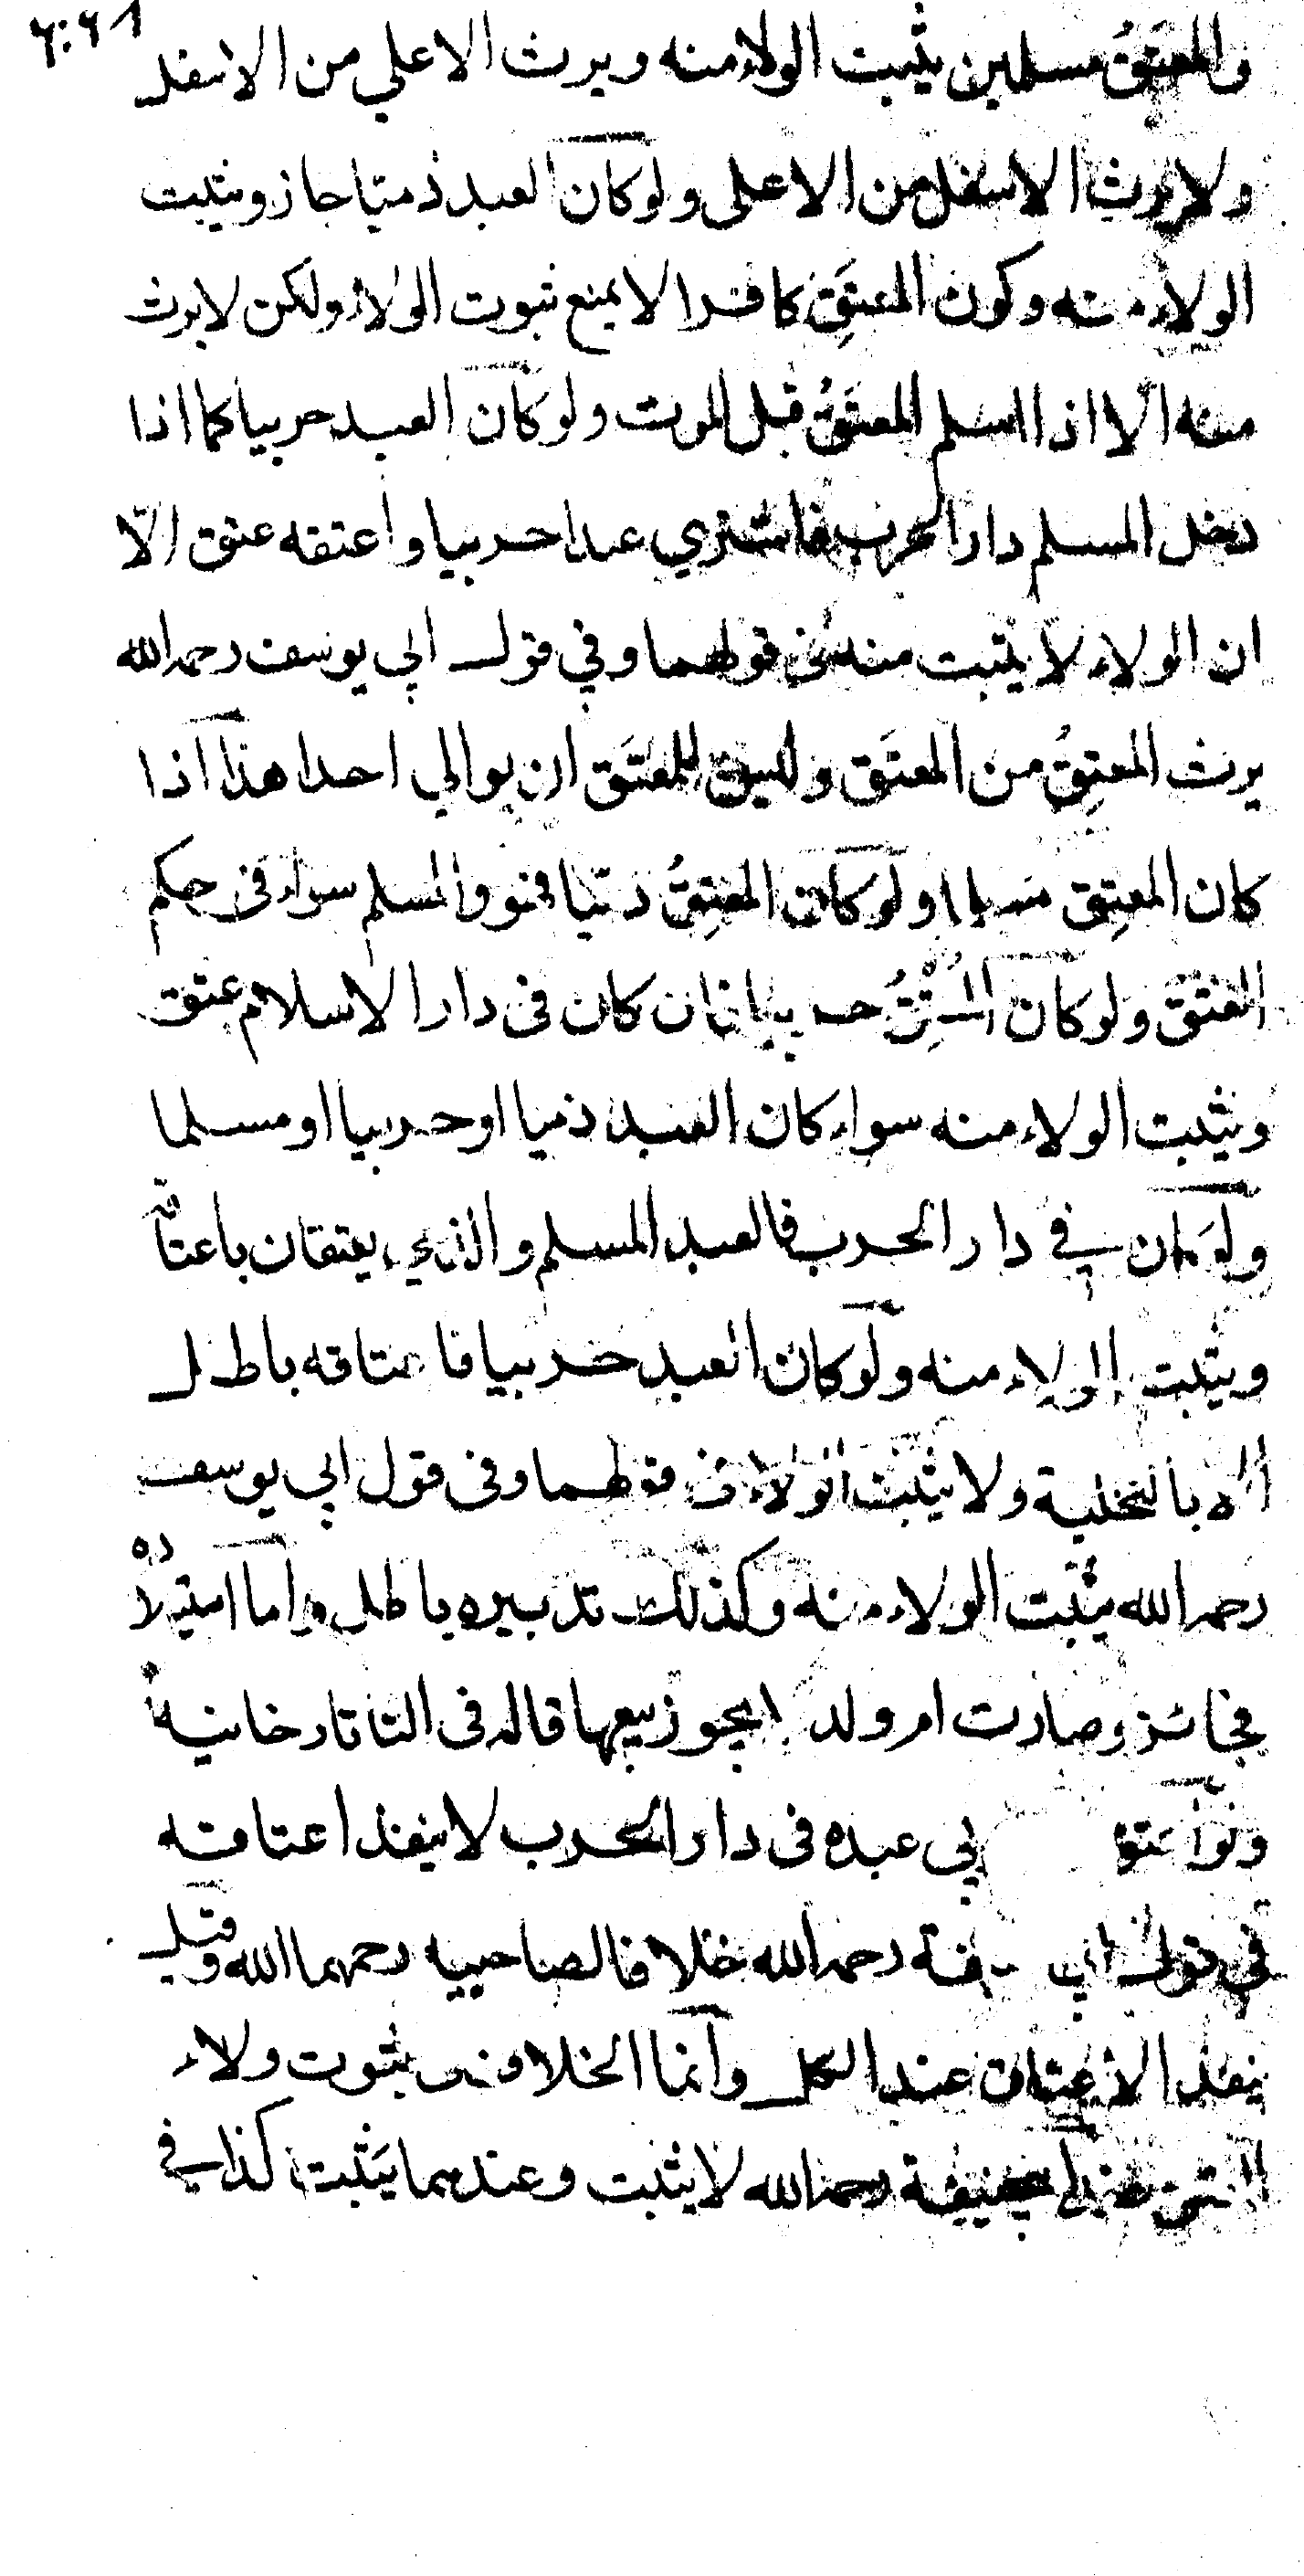 والمعتَقُ مسلمين يثبت الولاء منه ويرث الاعلي من الاسفل
ولا يرث الاسفل من الاعلى ولو كان العبد ذميا جاز ويثبت
الولاء منه وكون المعتَقِ كافرا لا يمنع ثبوت الولاء ولكن لا يرث
منه الا اذا اسلم المعتَقُ قبل الموت ولو كان العبد حربيا كما اذا
دخل المسلم دار الحرب فاشتري عبدا حربيا واعتقه عتق الّا
ان الولاء لا يثبت منه في قولهما وفي قول ابي يوسف رحمه الله
يرث المعتِقُ من المعتَق وليس للمعتَق ان يوالي احدا هذا اذا
كان المعتِق مسلما ولو كان المعتِقُ ذميا فهو والمسلم سواء في حكم
العتق ولو كان المُعْتِقُ حربيا فان كان في دار الاسلام عتق
ويثبت الولاء منه سواء كان العبد ذميا او حربيا او مسلما
ولو كان في دار الحرب فالعبد المسلم والذمي يعتقان باعتاقه
ويثبت الولاء منه ولو كان العبد حربيا فاعتاقه باطل
الا بالتخلية ولا يثبت الولاء في قولهما وفي قول ابي يوسف
رحمه الله يثبت الولاء منه وكذلك تدبيره باطل واما استيلاده
فجائز وصارت ام ولد لا يجوز بيعها قاله في التاتارخانية
ولو اعتق بي عبده في دار الحرب لا ينفذ اعتاقه
في قول ابي حنيفة رحمه الله خلافا لصاحبيه رحمهما الله وقيل
ينفذ الاعتاق عند الكل وانما الخلاف في ثبوت ولاء
العتق عند ابي حنيفة رحمه الله لا يثبت وعندهما يثبت كذا في